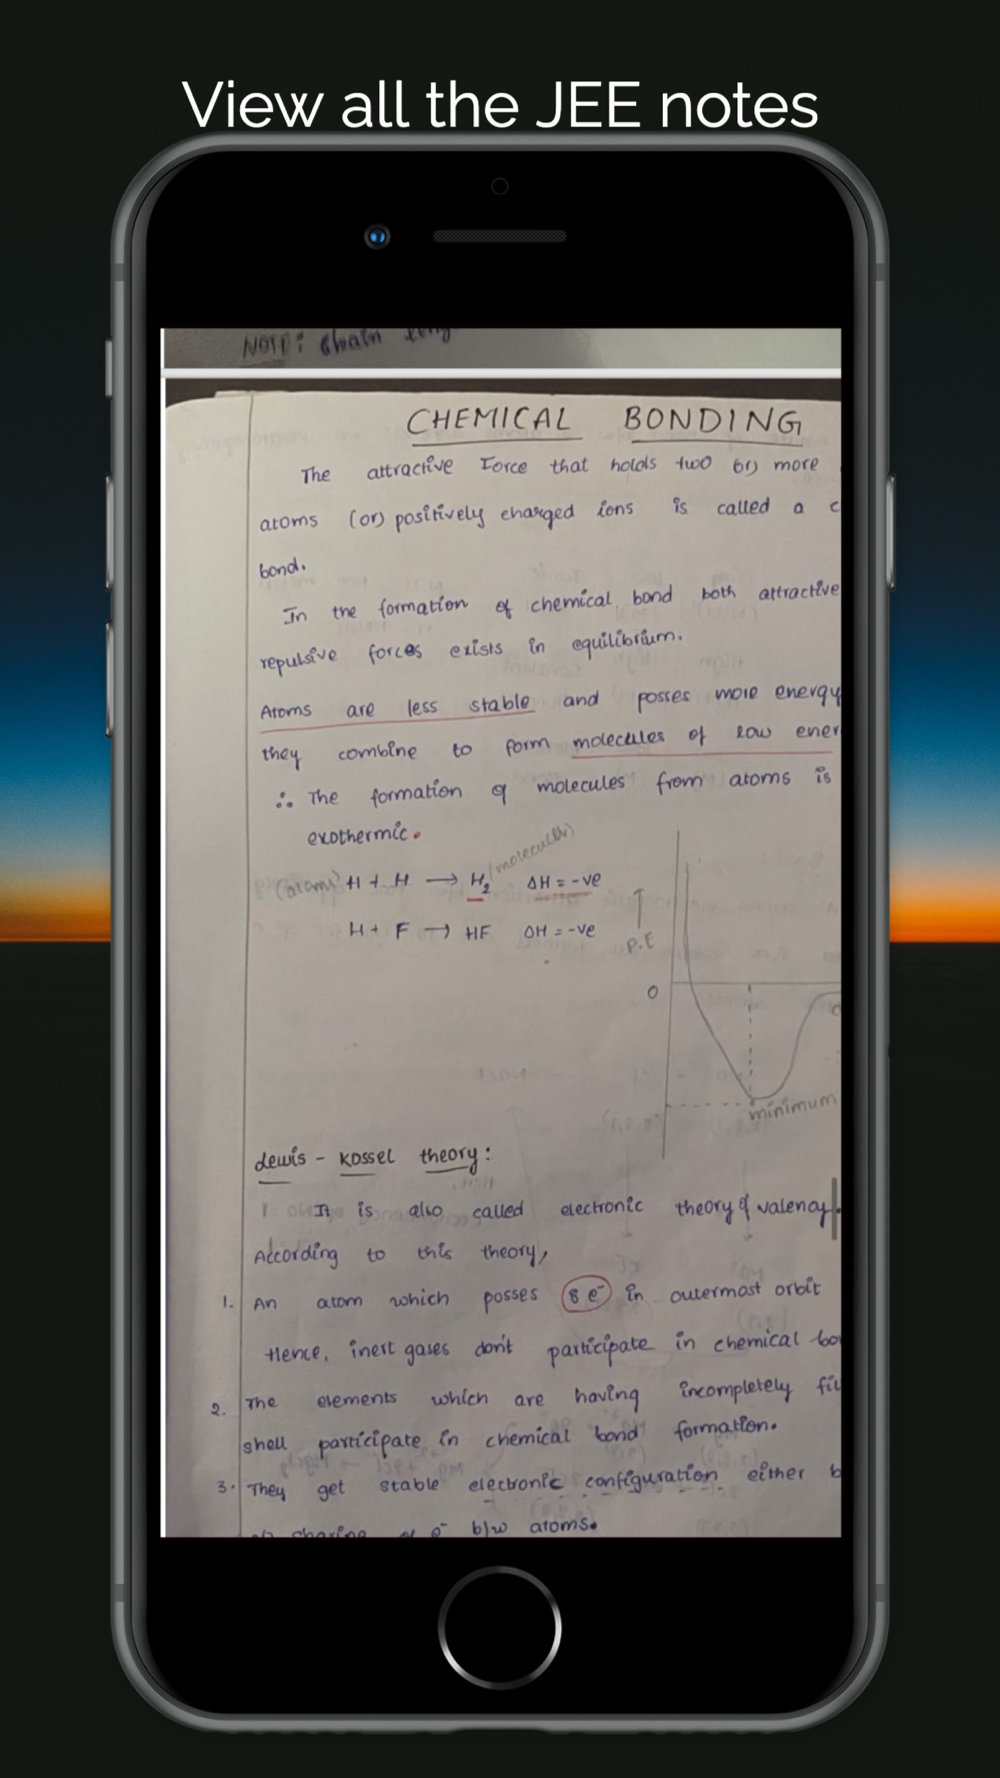 View all the JEE notes
NOTE: Chain
CHEMICAL BONDING
The attractive Force that holds two (or) more
atoms (or) positively charged ions is called a c
bond.
In the formation of chemical bond both attractive
repulsive forces exists in equilibrium.
Atoms are less stable and posses more energy
they combine to form molecules of low ener
∴ The formation of molecules from atoms is
exothermic.
(atoms) H + H → H₂ (molecules) ΔH = -ve
H + F → HF ΔH = -ve
P.E
0
minimum
Lewis - Kossel theory:
It is also called electronic theory of valency.
According to this theory,
1. An atom which posses 8 e⁻ in outermost orbit
Hence, inert gases don't participate in chemical bo
2. The elements which are having incompletely fil
shell participate in chemical bond formation.
3. They get stable electronic configuration either b
sharing of e⁻ b/w atoms.